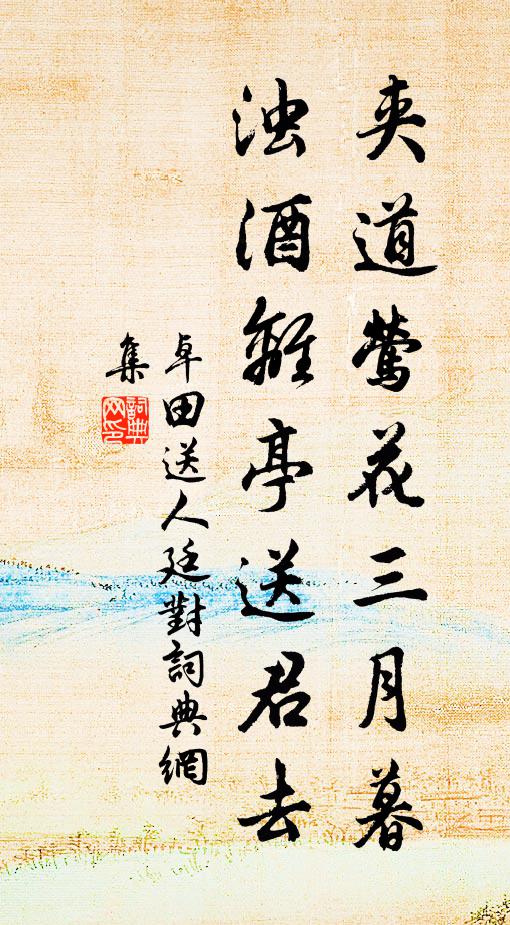 夹道莺花三月暮
浊酒離亭送君去
卓田送人廷對詞典網
集
詞典
网印